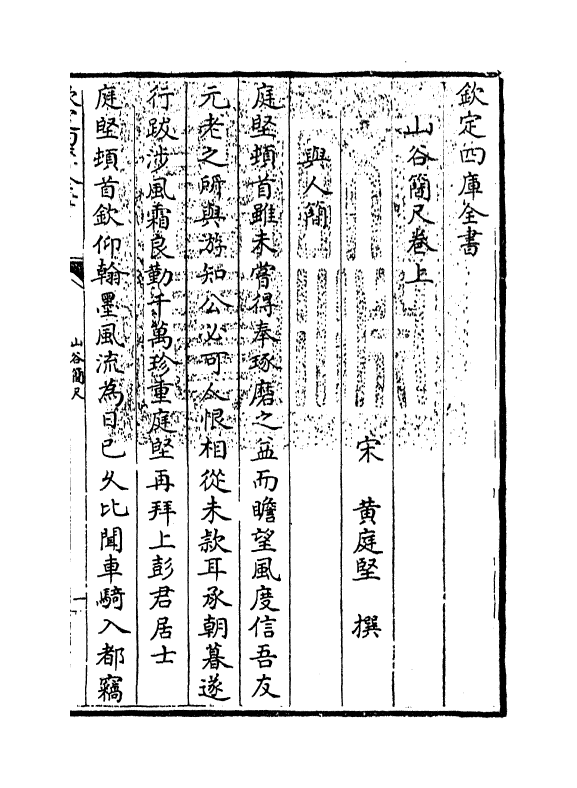 欽定四庫全書
山谷簡尺卷上
宋 黄庭堅 撰
與人簡
庭堅頓首雖未嘗得奉琢磨之益而瞻望風度信吾友
元老之所與游知公必可人恨相從未款耳承朝暮遂
行跋涉風霜良勤千萬珍重庭堅再拜上彭君居士
庭堅頓首欽仰翰墨風流為日已久比聞車騎入都竊
山谷簡尺